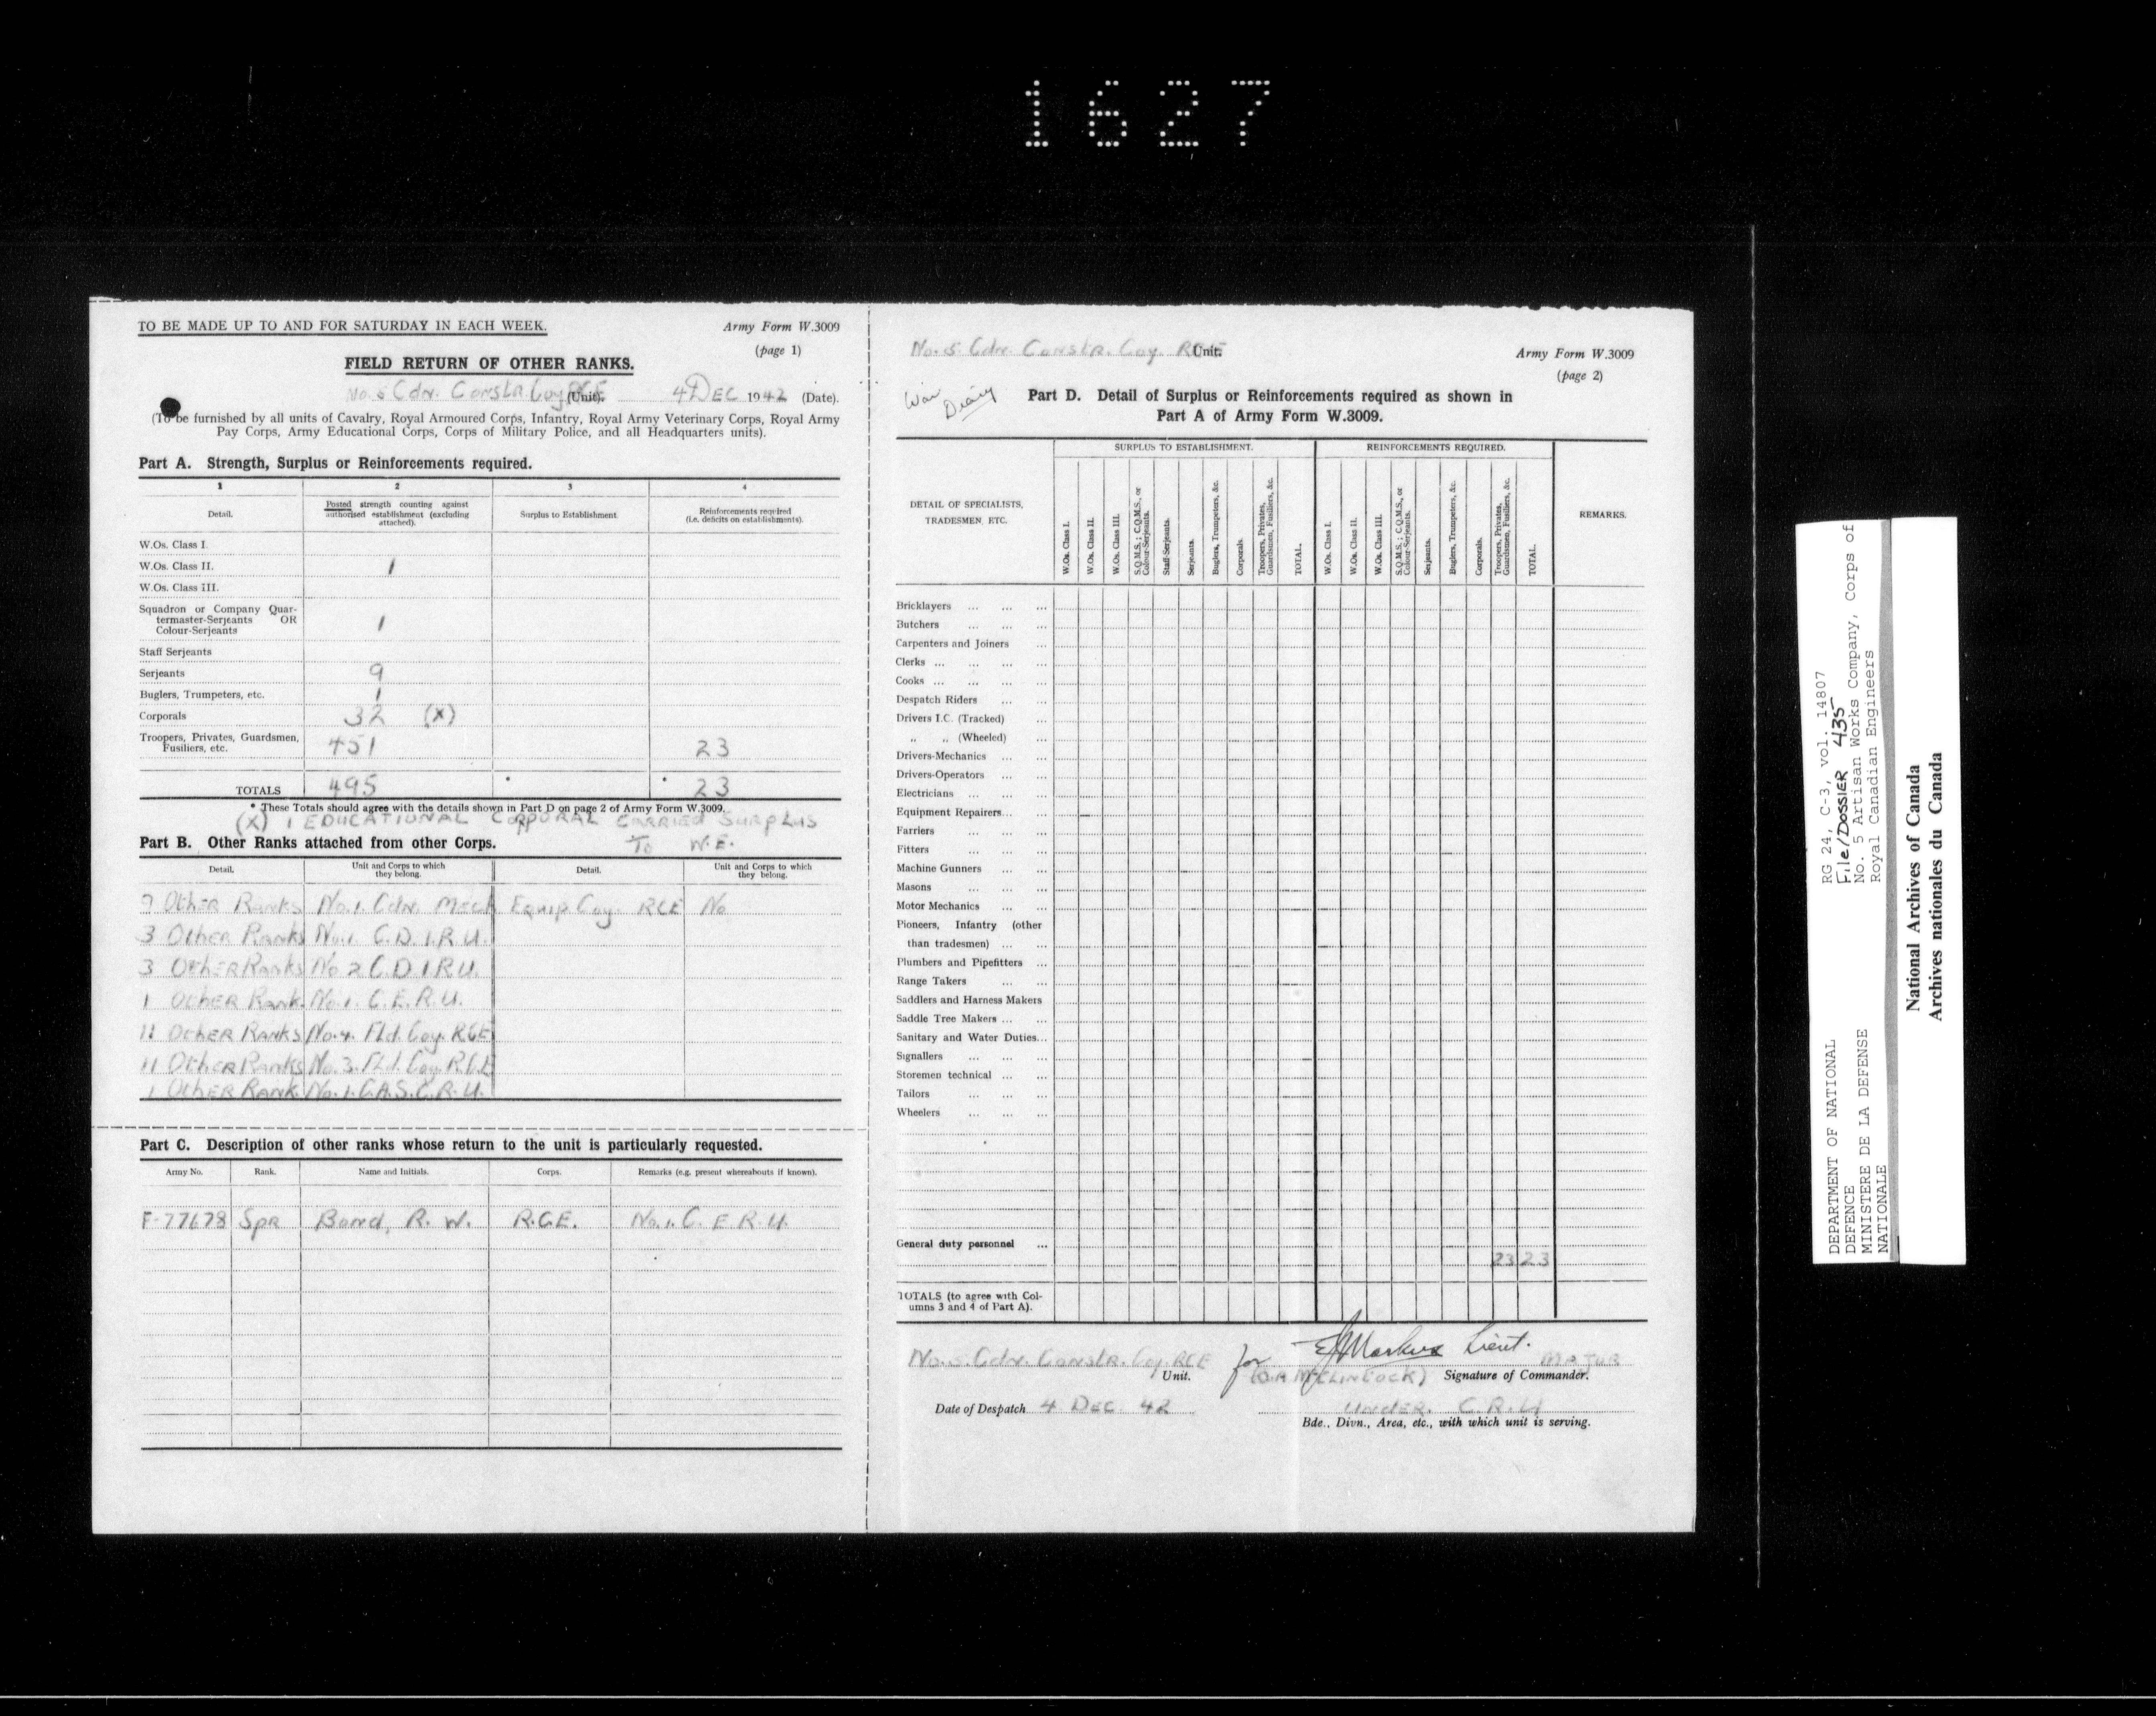 1627
TO BE MADE UP TO AND FOR SATURDAY IN EACH WEEK.
Army Form W.3009
(page 1)
FIELD RETURN OF OTHER RANKS.
No. 5 Cdn. Constr. Coy. RCE (Unit). 4 DEC 1942 (Date).
(To be furnished by all units of Cavalry, Royal Armoured Corps, Infantry, Royal Army Veterinary Corps, Royal Army
Pay Corps, Army Educational Corps, Corps of Military Police, and all Headquarters units).
Part A. Strength, Surplus or Reinforcements required.
1 2 3 4
Detail.
Posted strength counting against
authorised establishment (excluding
attached).
Surplus to Establishment
Reinforcements required
(i.e. deficits on establishments).
W.Os. Class I.
W.Os. Class II. 1
W.Os. Class III.
Squadron or Company Quar-
termaster-Serjeants OR
Colour-Serjeants 1
Staff Serjeants
Serjeants 9
Buglers, Trumpeters, etc. 1
Corporals 32 (X)
Troopers, Privates, Guardsmen,
Fusiliers, etc. 451 23
TOTALS 495 * * 23
* These Totals should agree with the details shown in Part D on page 2 of Army Form W.3009.
(X) 1 EDUCATIONAL CORPORAL CARRIED SURPLUS
TO W.E.
Part B. Other Ranks attached from other Corps.
Detail.
Unit and Corps to which
they belong.
Detail.
Unit and Corps to which
they belong.
Other Ranks No. 1. Cdn. Mech Equip Coy. RCE No
3 Other Ranks No. 1. C.D.I.R.U.
3 Other Ranks No 2 C.D.I.R.U.
1 Other Rank No. 1. C.E.R.U.
11 Other Ranks No. 4. Fld. Coy. RCE
11 Other Ranks No. 3. Fld. Coy. R.C.E
1 Other Rank No. 1. C.A.S.C.R.U.
Part C. Description of other ranks whose return to the unit is particularly requested.
Army No. Rank. Name and Initials. Corps. Remarks (e.g. present whereabouts if known).
F-77678 Spr Bond, R. W. R.C.E. No. 1. C.E.R.U.
No. 5. Cdn. Constr. Coy. RCE Unit.
Army Form W.3009
(page 2)
War
Diary
Part D. Detail of Surplus or Reinforcements required as shown in
Part A of Army Form W.3009.
DETAIL OF SPECIALISTS,
TRADESMEN, ETC.
SURPLUS TO ESTABLISHMENT.
W.Os. Class I.
W.Os. Class II.
W.Os. Class III.
S.Q.M.S.; C.Q.M.S., or
Colour-Serjeants.
Staff-Serjeants.
Serjeants.
Buglers, Trumpeters, &c.
Corporals.
Troopers, Privates,
Guardsmen, Fusiliers, &c.
TOTAL.
REINFORCEMENTS REQUIRED.
W.Os. Class I.
W.Os. Class II.
W.Os. Class III.
S.Q.M.S.; C.Q.M.S., or
Colour-Serjeants.
Serjeants.
Buglers, Trumpeters, &c.
Corporals.
Troopers, Privates,
Guardsmen, Fusiliers, &c.
TOTAL.
REMARKS.
Bricklayers ... ... ...
Butchers ... ... ...
Carpenters and Joiners ...
Clerks ... ... ... ...
Cooks ... ... ... ...
Despatch Riders ... ...
Drivers I.C. (Tracked) ...
„ „ (Wheeled) ...
Drivers-Mechanics ... ...
Drivers-Operators ... ...
Electricians ... ... ...
Equipment Repairers... ...
Farriers ... ... ...
Fitters ... ... ...
Machine Gunners ... ...
Masons ... ... ...
Motor Mechanics ... ...
Pioneers, Infantry (other
than tradesmen) ... ...
Plumbers and Pipefitters ...
Range Takers ... ...
Saddlers and Harness Makers
Saddle Tree Makers ... ...
Sanitary and Water Duties...
Signallers ... ... ...
Storemen technical ... ...
Tailors ... ... ...
Wheelers ... ... ...
General duty personnel ...
23 23
TOTALS (to agree with Col-
umns 3 and 4 of Part A).
No. 5. Cdn. Constr. Coy. RCE Unit.
for Markus Lieut. MAJOR
McCLINTOCK) Signature of Commander.
Date of Despatch 4 DEC. 42
UNDER. C.R.U
Bde., Divn., Area, etc., with which unit is serving.
RG 24, C-3, vol. 14807
File/DOSSIER 435
No. 5 Artisan Works Company, Corps of
Royal Canadian Engineers
DEPARTMENT OF NATIONAL
DEFENCE
MINISTERE DE LA DEFENSE
NATIONALE
National Archives of Canada
Archives nationales du Canada